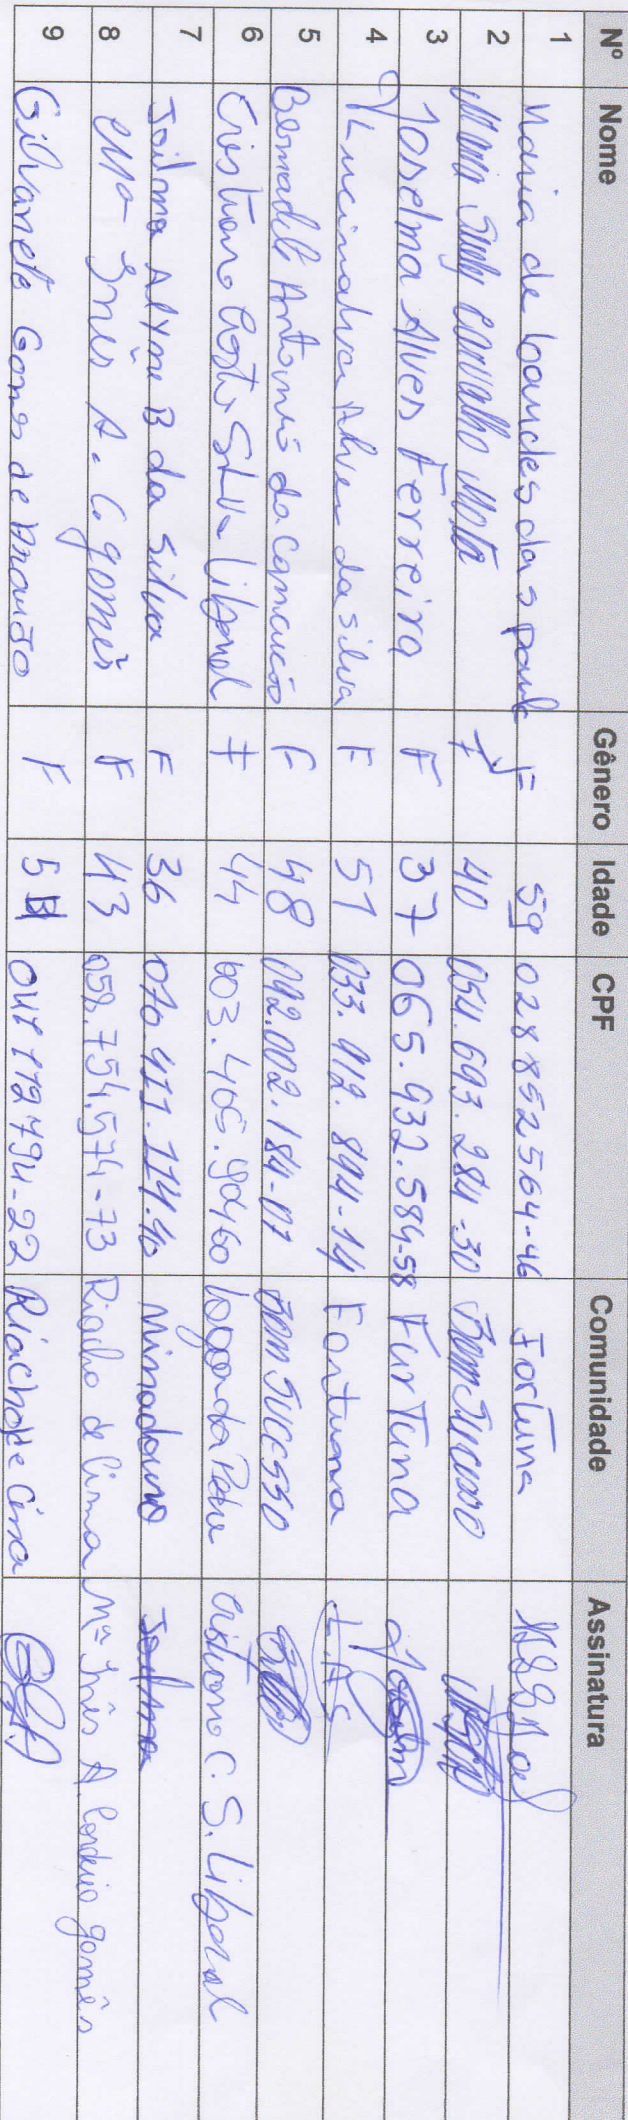 Nº Nome Gênero Idade CPF Comunidade Assinatura
1 Maria de Lourdes da S F 59 028852564-46 Fortuna
2 Maria Suely Carvalho Mota F 40 054.693.284-30 Bom Sucesso
3 Joselma Alves Ferreira F 37 065.932.584-58 FurTuna
4 Lucinalva Alves da silva F 51 033.912.894-14 Fortuna L.A.S
5 Bernadete Antonia da Conceicão F 48 092.002.184-07 Bom SUCESSO
6 Cristiana Costa Silva Liberal F 44 Lagoa da Pedra Cristiana C. S. Liberal
7 Joilma Alyne B da Silva F 36 070.411.114.40 Minadouro Joilma
8 Mª Inês A. C gomes F 43 058.754.574-73 Riacho de Cima Mª Inês A. Cordeiro gomês
9 Gilvanete Gomes de F Riacho de Cima